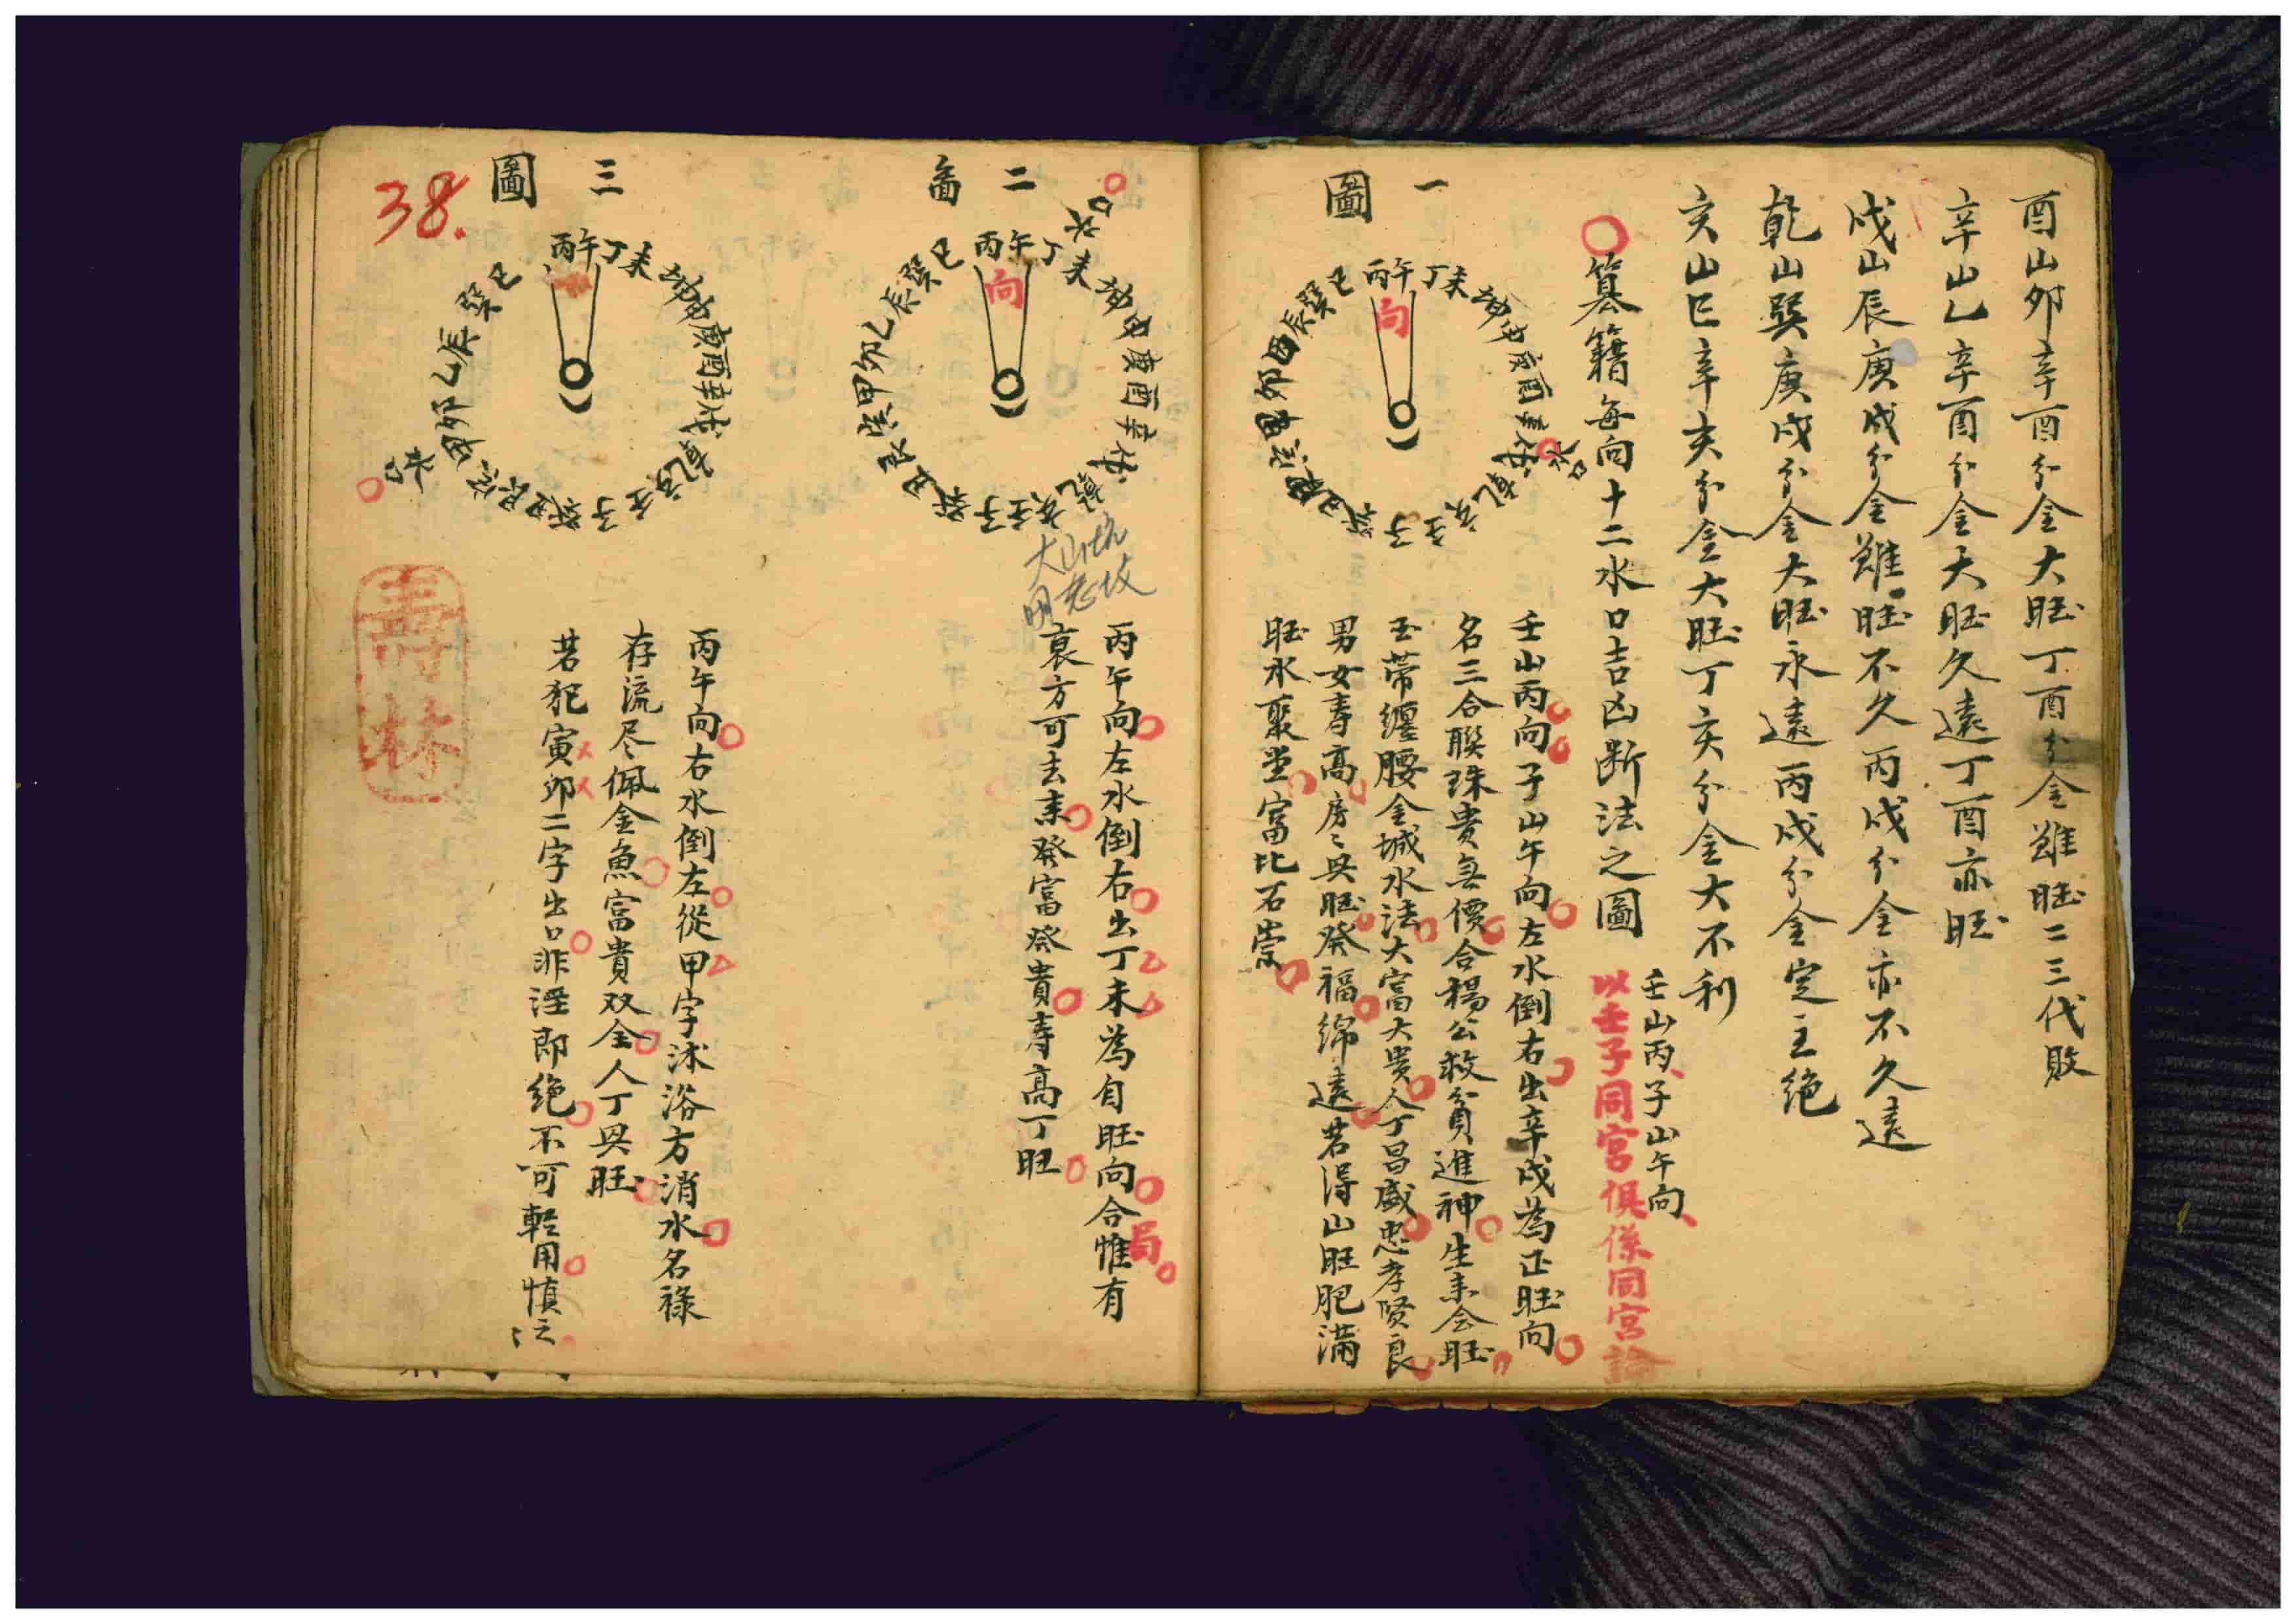 酉山卯辛酉分金大旺丁酉分金雖旺二三代敗
辛山乙辛酉分金大旺久遠丁酉亦旺
戌山辰庚戌分金雖旺不久丙戌分金亦不久遠
乾山巽庚戌分金大旺永遠丙戌分金定主絕
亥山巳辛亥分金大旺丁亥分金大不利
纂籍每向十二水口吉凶断法之圖
壬山丙、子山午向、
以壬子同宮俱係同宮論
一圖
丙午丁未坤申庚酉辛戌乾亥壬子癸丑艮寅甲卯乙辰巽巳
向
水口
壬山丙向子山午向左水倒右出辛戌為正旺向
名三合聯珠貴無價合楊公救貧進神生來会旺
玉帶纏腰金城水法大富大貴人丁昌盛忠孝賢良
男女壽高房々興旺發福綿遠若得山旺肥滿
旺水聚堂富比石崇
二畵
丙午丁未坤申庚酉辛戌乾亥壬子癸丑艮寅甲卯乙辰巽巳
向
水口
大山坑
用老坟
丙午向左水倒右出丁未為自旺向合惟有
局
衰方可去來發富發貴壽高丁旺
三圖
丙午丁未坤申庚酉辛戌乾亥壬子癸丑艮寅甲卯乙辰巽巳
水口
丙午向右水倒左從甲字沭浴方消水名祿
存流尽佩金魚富貴双全人丁興旺
若犯寅卯二字出口非淫即絶不可輕用慎之
38.
壽林